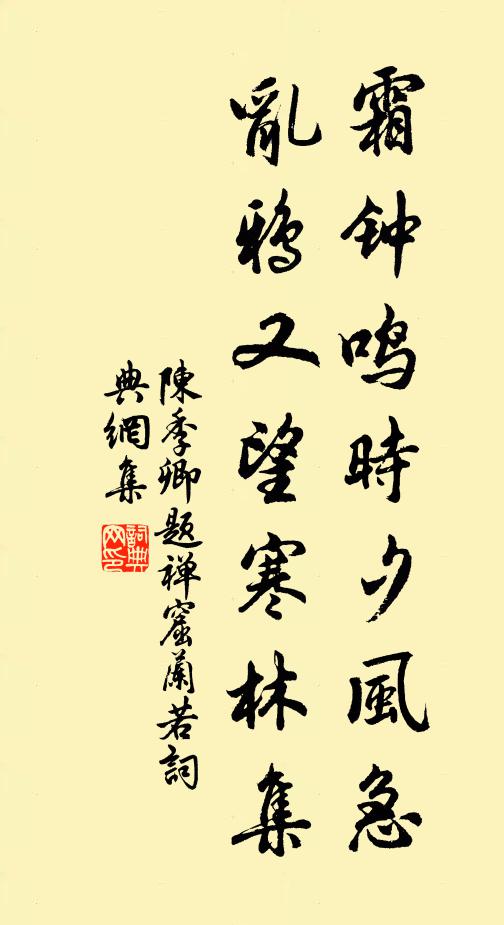 霜钟鸣時夕風急
亂鴉又望寒林集
陳季卿題禅窟蘭若詞
典網集
詞典网印